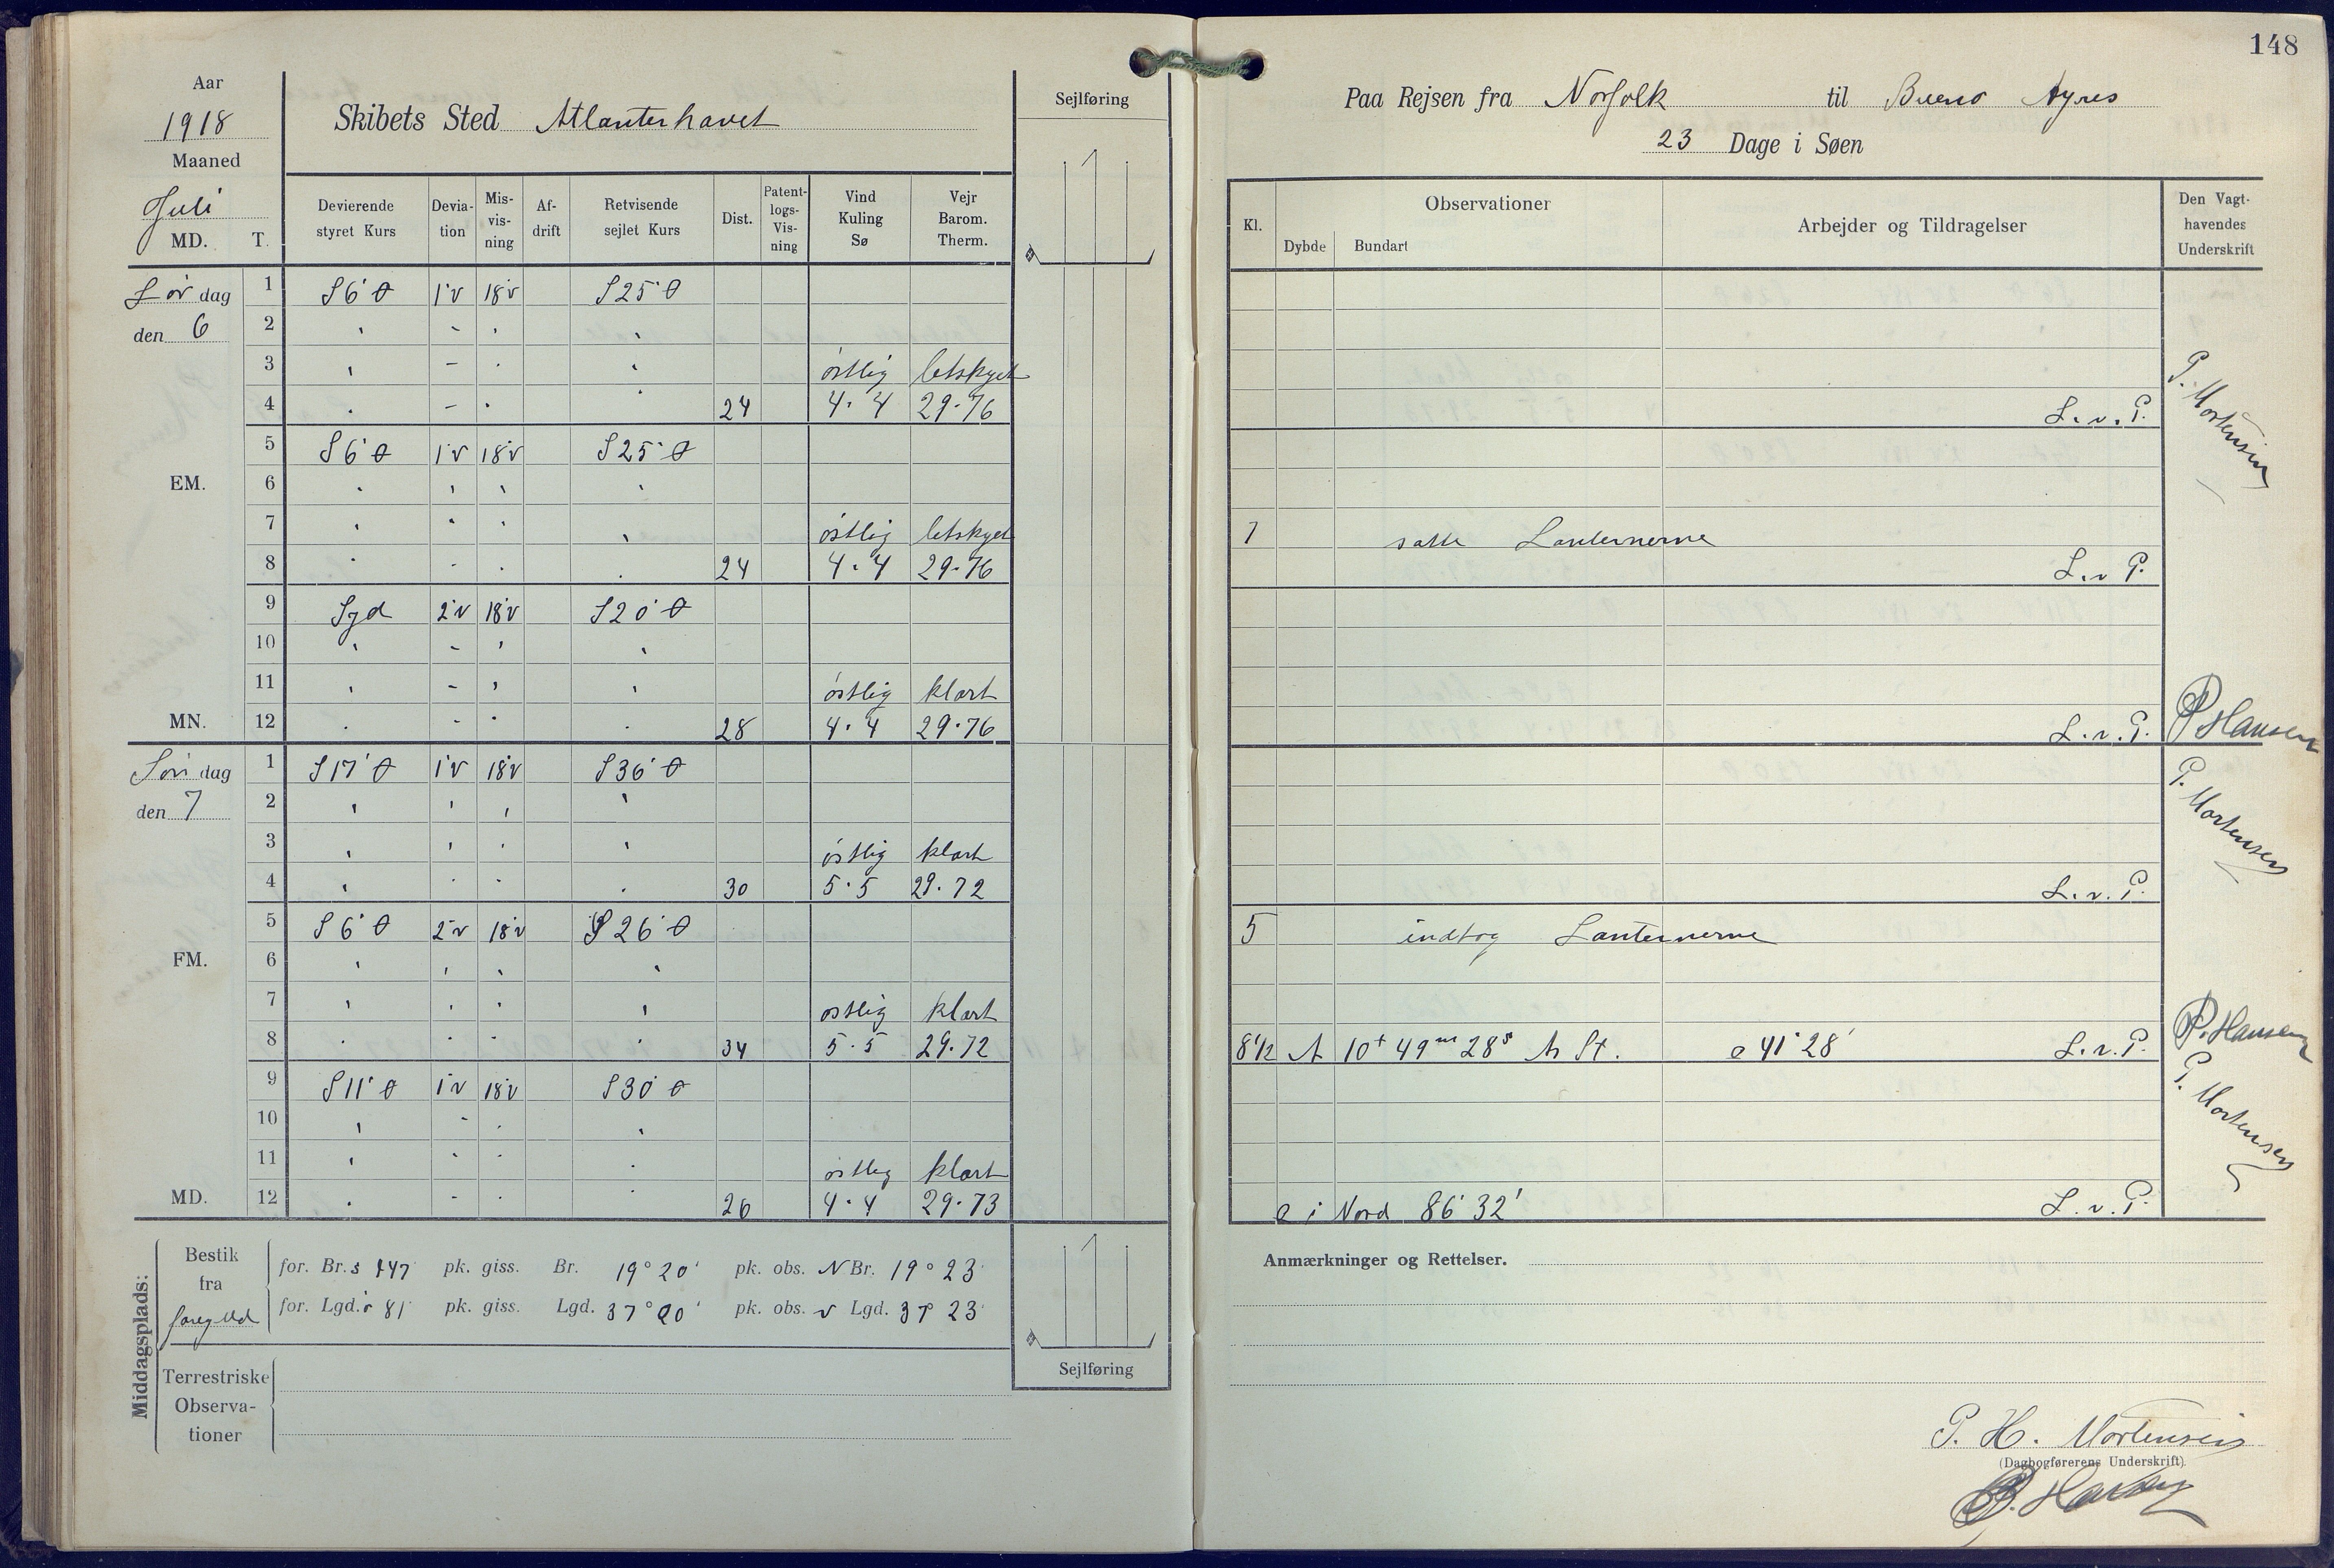 148
Aar
1918
Maaned
Juli
MD. T.
Skibets Sted Atlanterhavet
Sejlføring
Devierende styret Kurs
Deviation
Misvisning
Afdrift
Retvisende sejlet Kurs
Dist.
Patentlogs-Visning
Vind Kuling Sø
Vejr Barom. Therm.
Lørdag
den 6
1 S6°Ø 1°V 18°V S25°Ø
2 " " " "
3 " " " " østlig letskyet
4 " " " " 24 4·4 29·76
5 S6°Ø 1°V 18°V S25°Ø
EM. 6 " " " "
7 " " " " østlig letskyet
8 " " " " 24 4·4 29·76
9 Syd 2°V 18°V S20°Ø
10 " " " "
11 " " " " østlig klart
MN. 12 " " " " 28 4·4 29·76
Søndag
den 7
1 S17°Ø 1°V 18°V S36°Ø
2 " " " "
3 " " " " østlig klart
4 " " " " 30 5·5 29·72
5 S6°Ø 2°V 18°V S26°Ø
FM. 6 " " " "
7 " " " " østlig klart
8 " " " " 34 5·5 29·72
9 S11°Ø 1°V 18°V S30°Ø
10 " " " "
11 " " " " østlig klart
MD. 12 " " " " 26 4·4 29·73
Middagsplads:
Bestik fra
for. Br. s 147' pk. giss. Br. 19° 20' pk. obs. N Br. 19° 23'
for. Lgd. ø 81' pk. giss. Lgd. 37° 20' pk. obs. v Lgd. 37° 23'
Terrestriske Observationer
Sejlføring
Paa Rejsen fra Norfolk til Bueno Ayres
23 Dage i Søen
Kl.
Observationer
Dybde Bundart
Arbejder og Tildragelser
Den Vagthavendes Underskrift
L. v. P. P. Mortensen
7 satte Lanternerne
L. v P.
L. v. P. P Hansen
L. v. P. P. Mortensen
5 indtog Lanternerne
8½ A 10t 49m 28s A St. 41° 28' L. v. P. P. Hansen
i Nord 86° 32' L. v. P. P. Mortensen
Anmærkninger og Rettelser.
P. H. Mortensen
(Dagbogførerens Underskrift)
P. Hansen